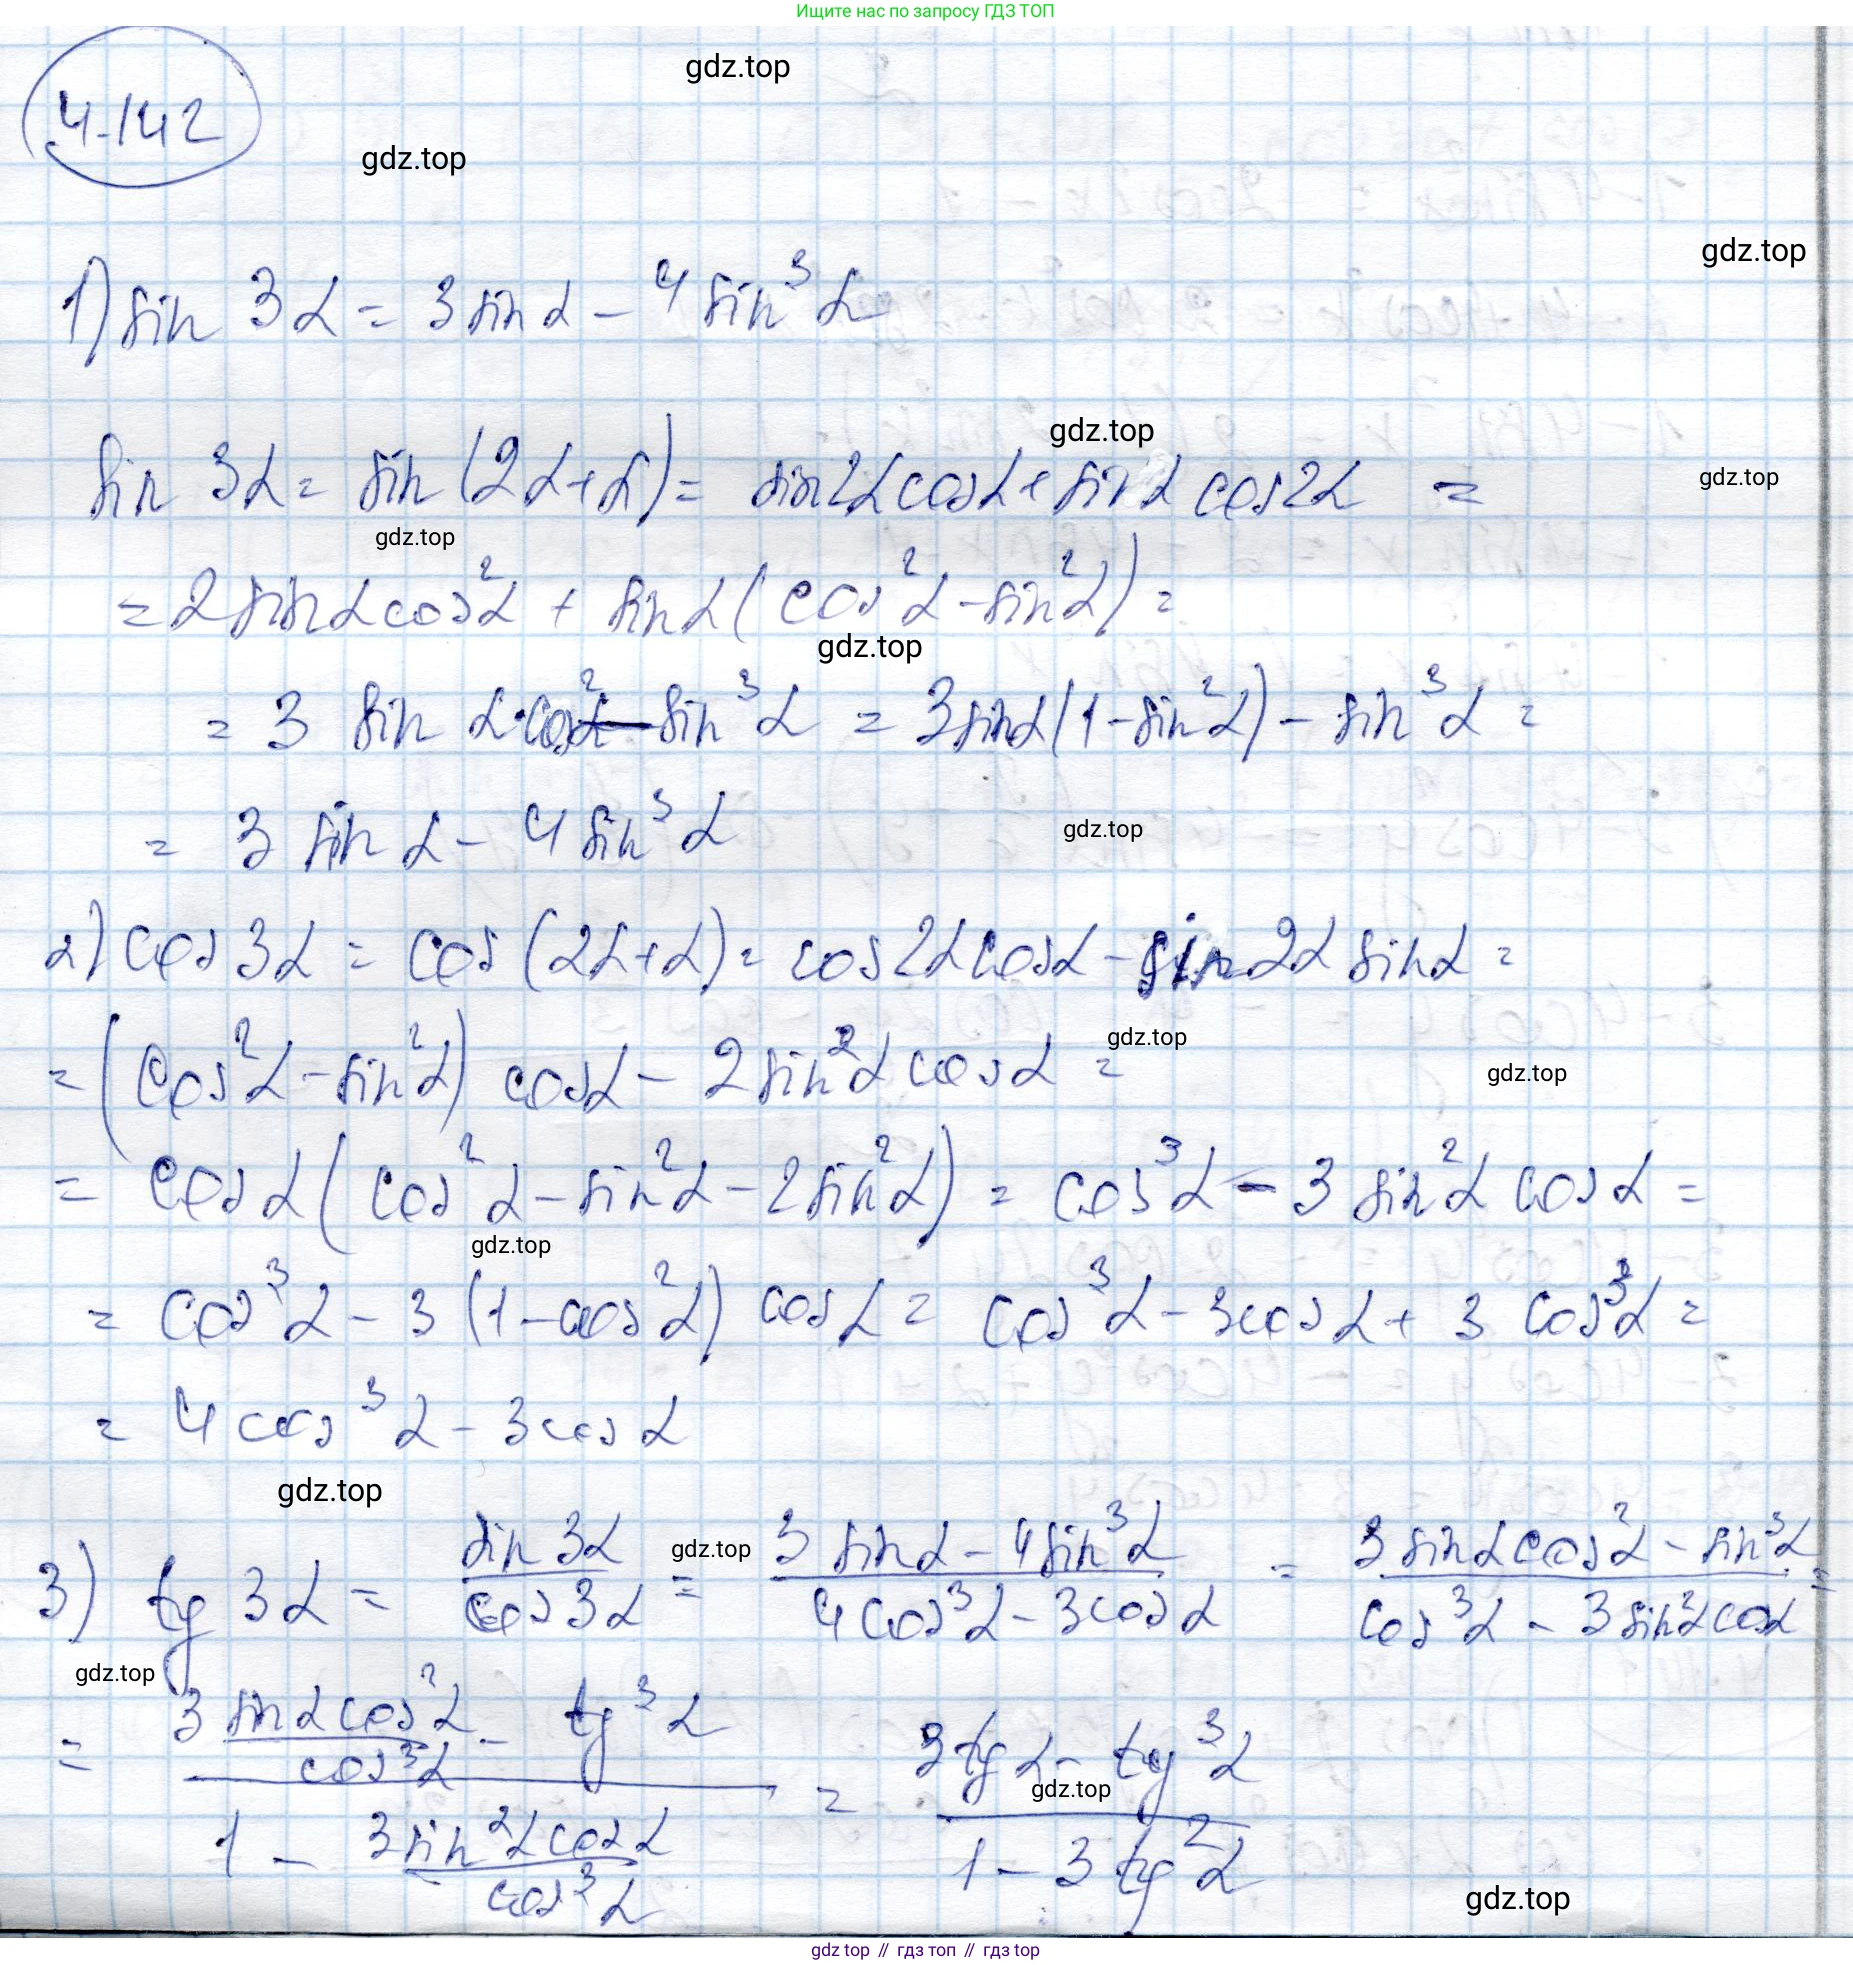 Ищите нас по запросу ГДЗ ТОП
gdz.top
4.142
gdz.top
gdz.top
1) sin 3α = 3 sin α − 4 sin³ α
gdz.top
sin 3α = sin (2α + α) = sin 2α cos α + sin α cos 2α =
gdz.top
gdz.top
= 2 sin α cos² α + sin α (cos² α − sin² α) =
gdz.top
= 3 sin α · cos² α − sin³ α = 3 sin α (1 − sin² α) − sin³ α =
= 3 sin α − 4 sin³ α
gdz.top
2) cos 3α = cos (2α + α) = cos 2α cos α − sin 2α sin α =
gdz.top
= (cos² α − sin² α) cos α − 2 sin² α cos α =
gdz.top
= cos α (cos² α − sin² α − 2 sin² α) = cos³ α − 3 sin² α cos α =
gdz.top
= cos³ α − 3 (1 − cos² α) cos α = cos³ α − 3 cos α + 3 cos³ α =
= 4 cos³ α − 3 cos α
gdz.top
gdz.top
3) tg 3α = sin 3α / cos 3α = (3 sin α − 4 sin³ α) / (4 cos³ α − 3 cos α) = (3 sin α cos² α − sin³ α) / (cos³ α − 3 sin² α cos α) =
gdz.top
= (3 sin α cos² α / cos³ α − tg³ α) / (1 − 3 sin² α cos α / cos³ α) = (3 tg α − tg³ α) / (1 − 3 tg² α)
gdz.top
gdz.top
gdz top // гдз топ // гдз top